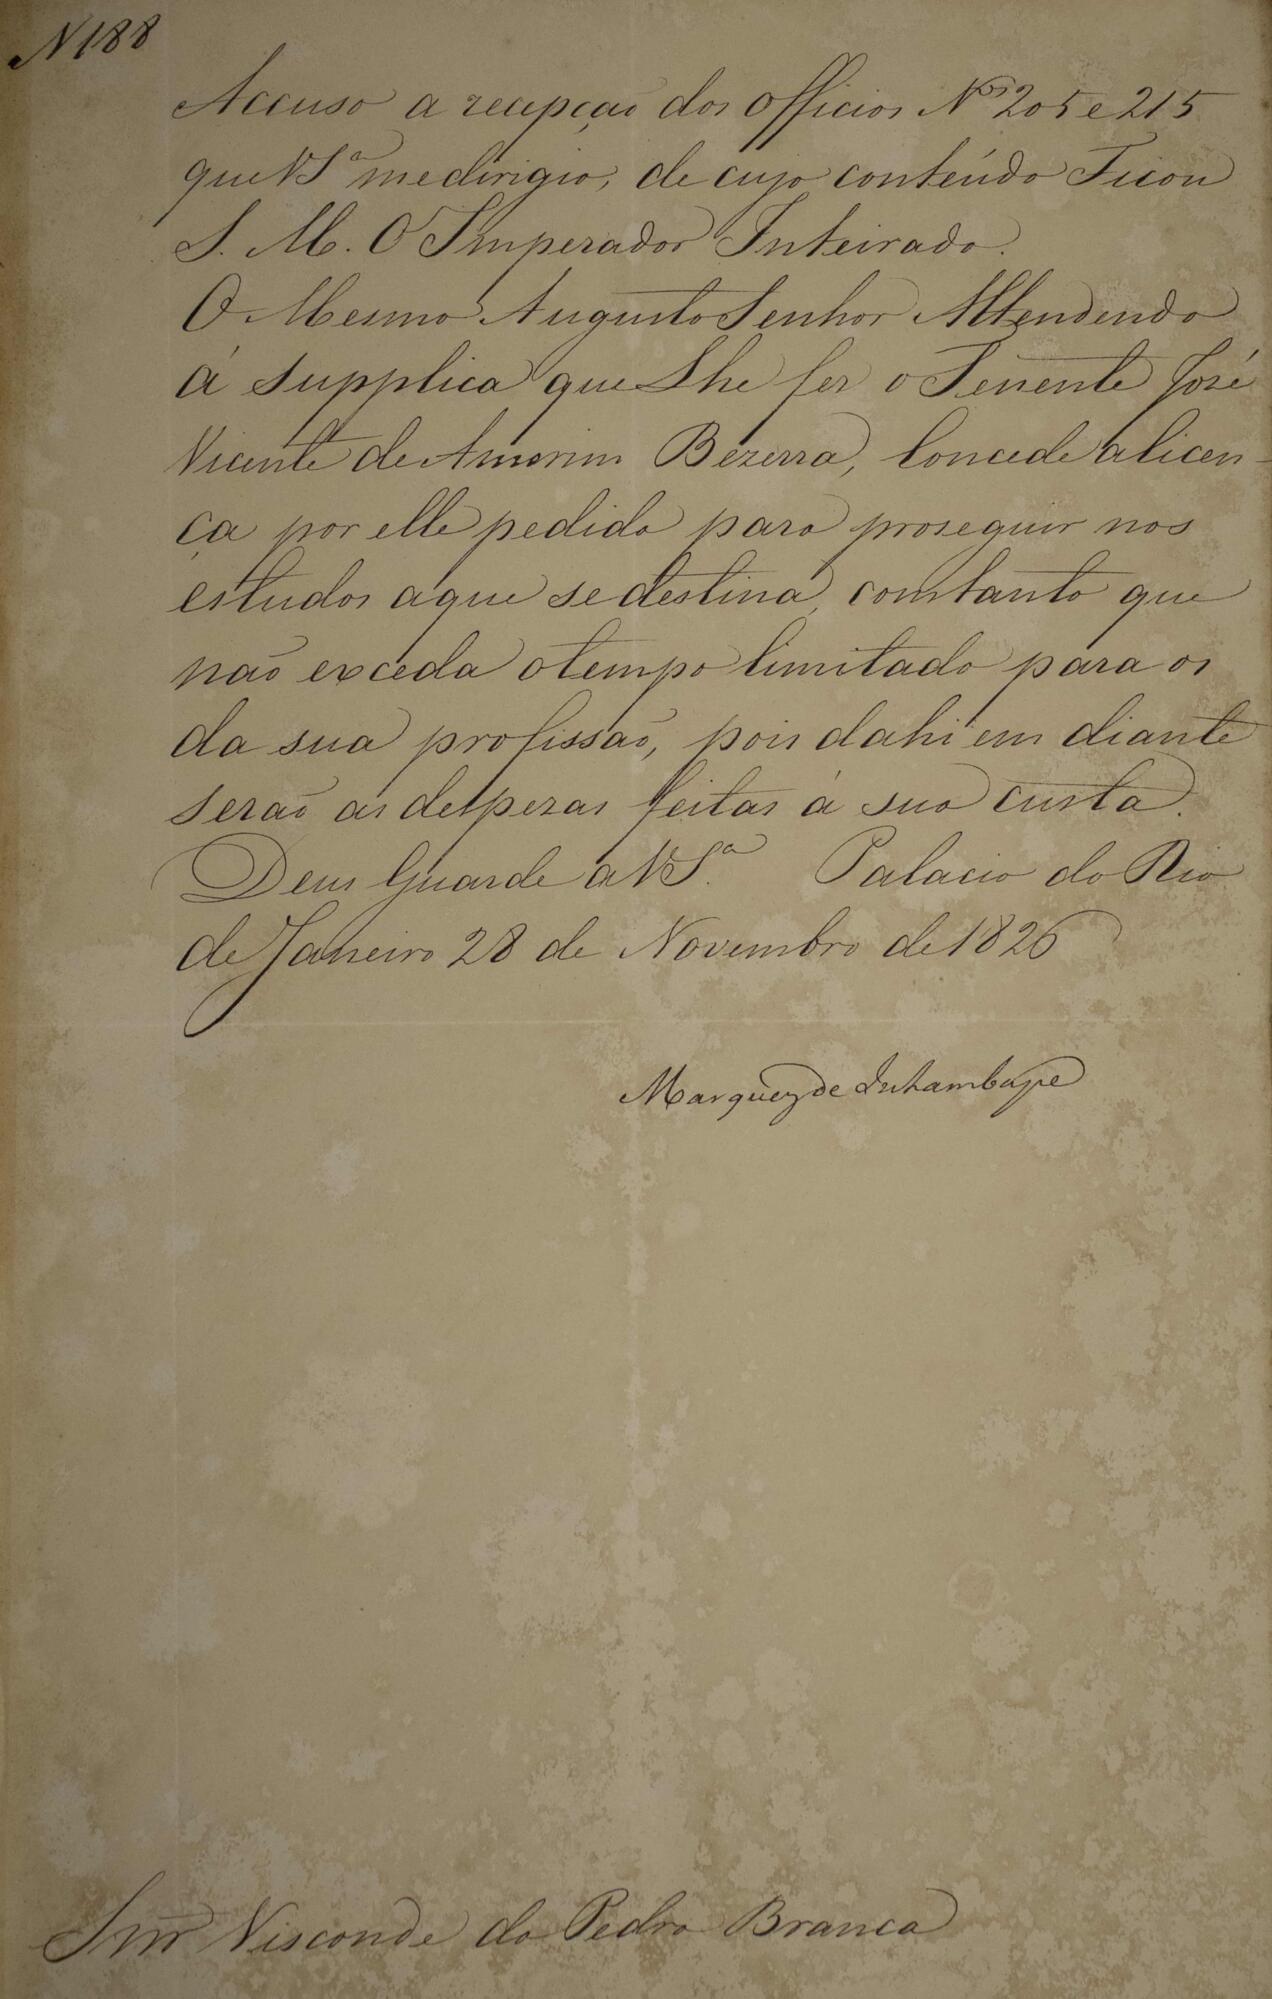 N 188
Accuso a recepção dos officios Nos 205 e 215
que VSª me dirigio, de cujo contéúdo Ficou
S. M. O Imperador Inteirado.
O Mesmo Augusto Senhor Attendendo
á supplica que Lhe fez o Tenente José
Vicente de Amorim Bezerra, Concede a licen-
ça por elle pedida para proseguir nos
estudos a que se destina, comtanto que
não exceda o tempo limitado para os
da sua profissão, pois dahi em diante
serão as despezas feitas á sua custa.
Deus Guarde a VSª. Palacio do Rio
de Janeiro 28 de Novembro de 1826
Marquez de Inhambupe
Snr Visconde da Pedra Branca